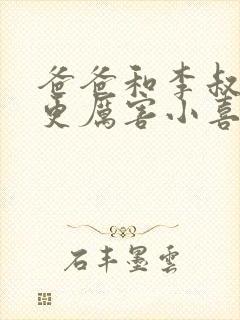 爸爸和李叔
更厉害小喜
石丰墨雲